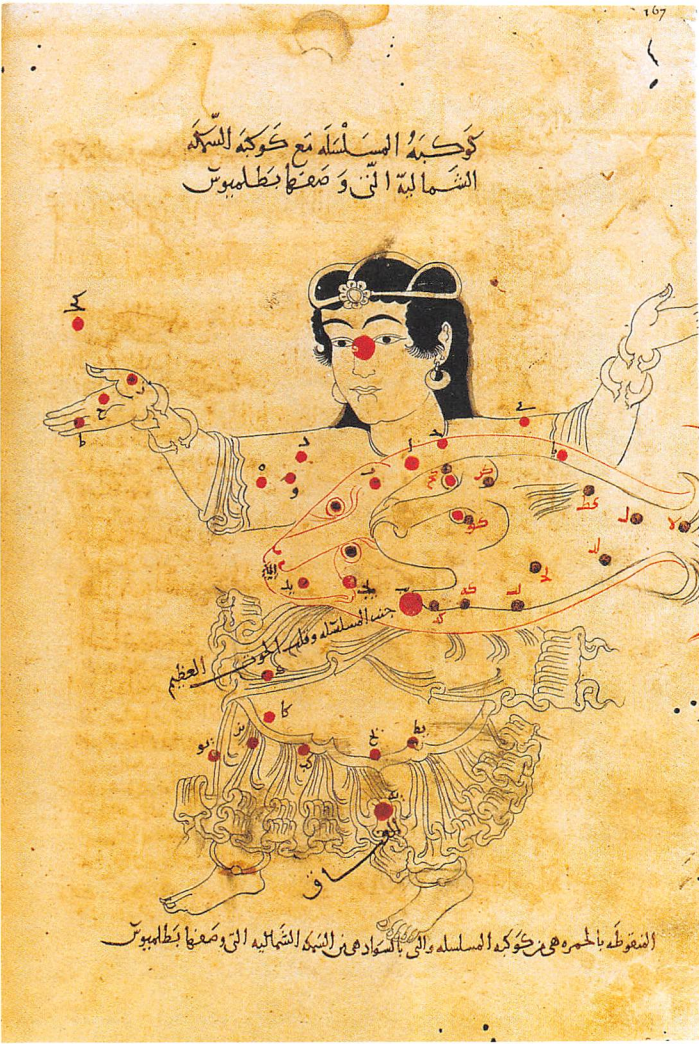 167
كَوكبَةُ المسَلْسَلَه مَع كَوكبَه السَّمكَه
الشَمَاليَّه الَّتى وَصَفَهَا بَطَلميوسُ
كح
ر
ح
ط
د
ه
و
ا
ح
ع
كر
كو
عط
ل
لا
لد
لح
يد
كد
كه
جنب المسلسله وقلب الحوت
العظيم
كا
يو
كب
يح
يط
يه
العناق
المنقوطَه بالحمره هى من كوكبه المسلسله والتى بالسواد هى من السمكه الشماليه التى وصَفهَا بَطلميوسُ